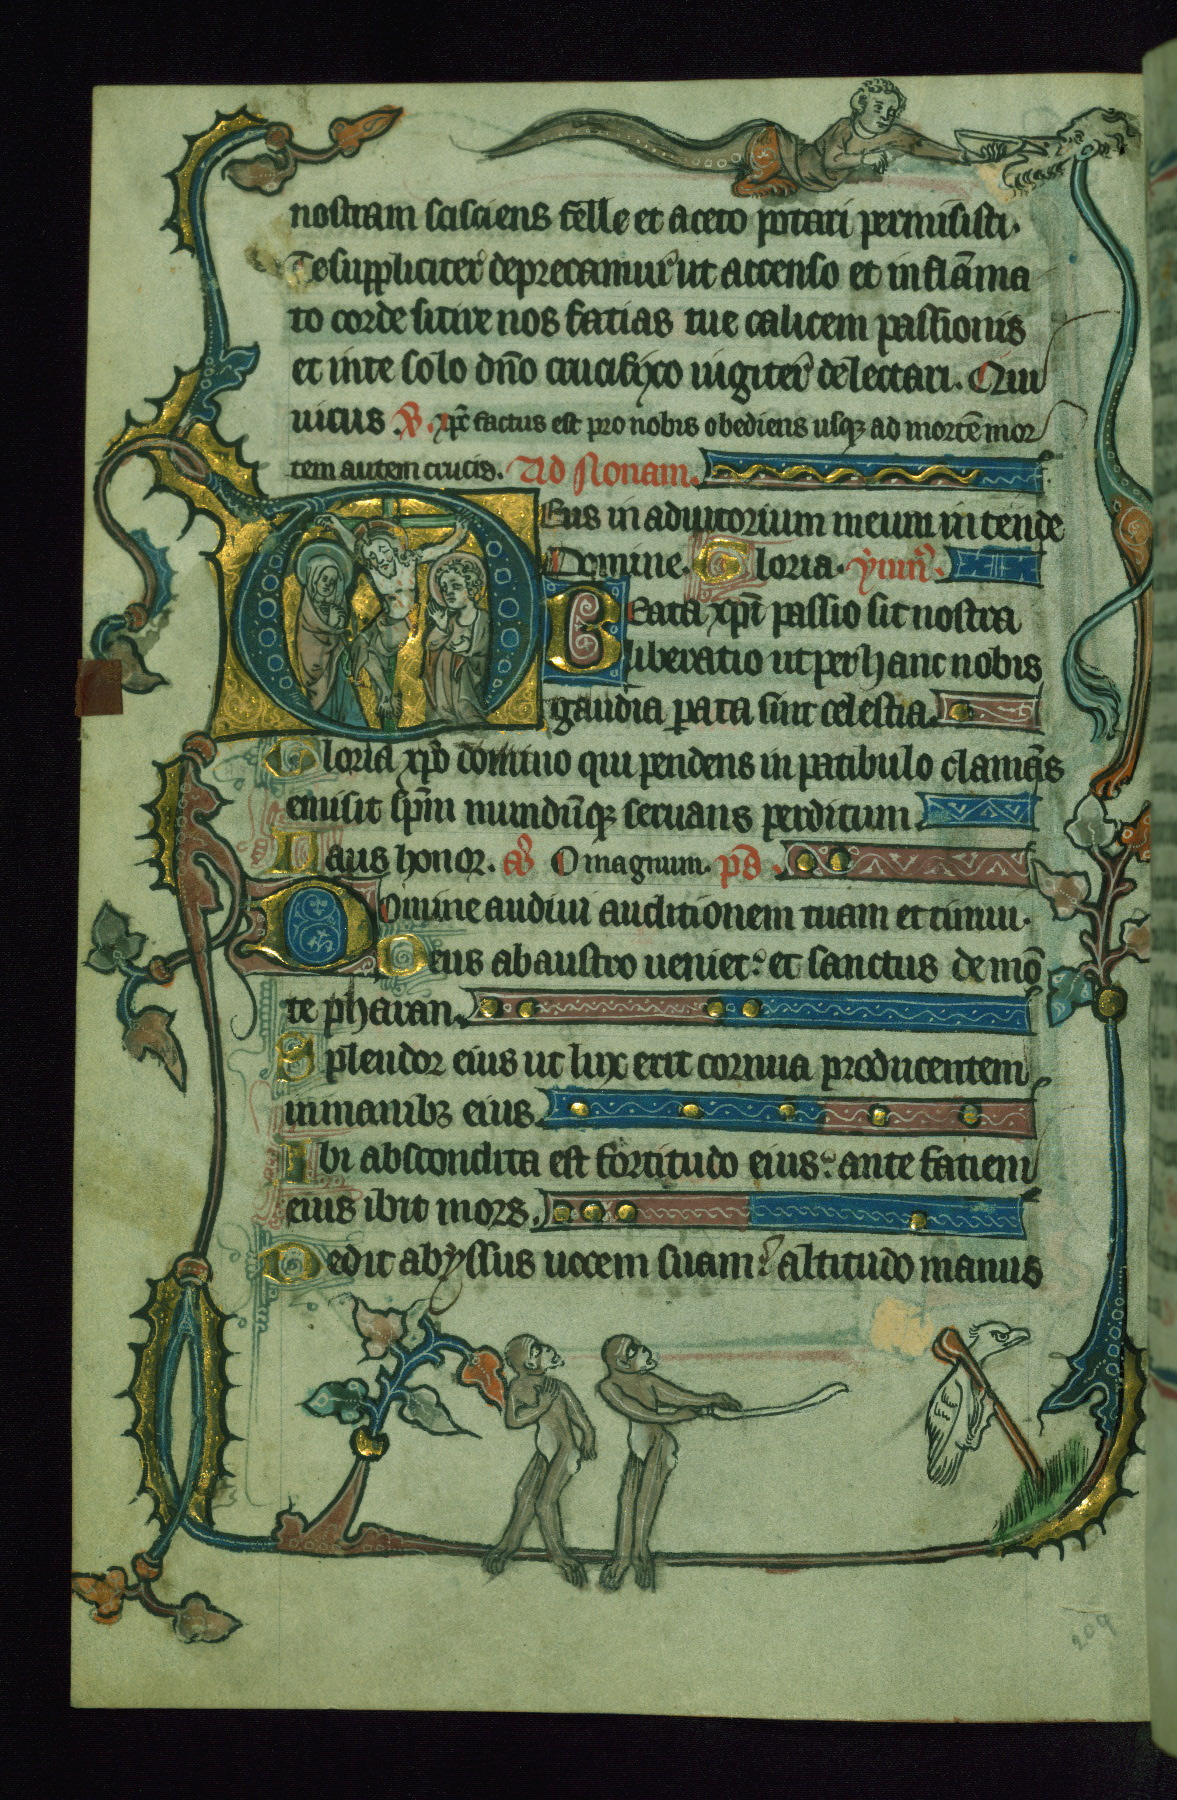 nostram sisciens felle et aceto potari permisisti.
Te suppliciter deprecamur ut accenso et inflāma
to corde sitire nos facias tue calicem passionis
et inte solo dn̄o crucifixo iugiter delectari. Qui
uiuis. V̄. xp̄c factus est pro nobis obediens usq; ad mortē mor
tem autem crucis. Ad Nonam.
Eus in adiutorium meum intende
Domine. Gloria. ym̄n.
Beata xp̄i passio sit nostra
liberatio ut per hanc nobis
gaudia parata sint celestia.
Gloria xp̄o domino qui pendens in patibulo clamās
emisit sp̄m mundūq; seruans perditum.
Laus honor. a᷒ O magnum. ps̄.
Domine audiui auditionem tuam et timui.
Deus ab austro ueniet: et sanctus de mō
te pharan.
Splendor eius ut lux erit cornua producentem
in manibꝫ eius.
Ibi abscondita est fortitudo eius: ante faciem
eius ibit mors.
Dedit abyssus uocem suam: altitudo manus
209